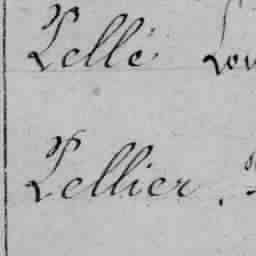 Pellé
Pellier.